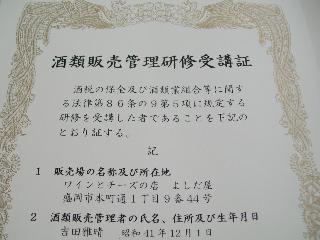 酒類販売管理研修受講証
酒税の保全及び酒類業組合等に関す
る法律第86条の9第5項に規定する
研修を受講した者であることを下記の
とおり証する。
記
1 販売場の名称及び所在地
ワインとチーズの店 よしだ屋
盛岡市本町通1丁目9番44号
2 酒類販売管理者の氏名、住所及び生年月日
吉田雅晴 昭和41年12月1日